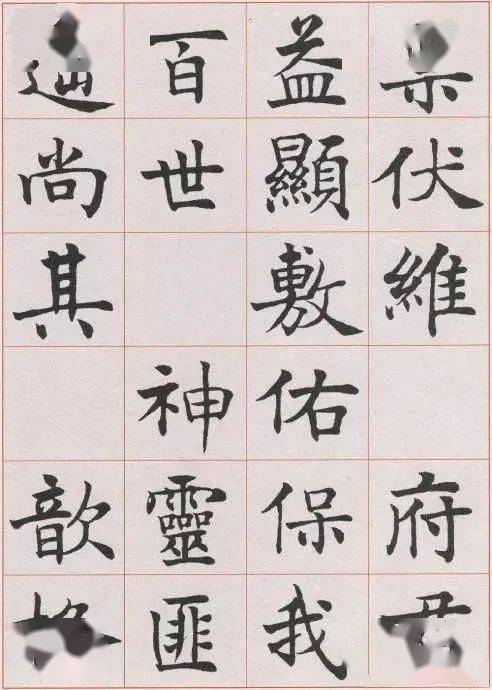 伏維 府
益顯敷佑保我
百世 神靈匪
尚其 歆